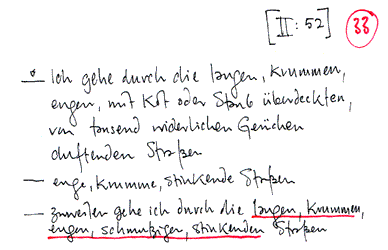 [II: 52] 33
Ich gehe durch die langen, krummen,
engen, mit Kot oder Staub überdeckten,
von tausend widerlichen Gerüchen
duftenden Straßen
— enge, krumme, stinkende Straßen
— zuweilen gehe ich durch die langen, krummen,
engen, schmutzigen, stinkenden Straßen